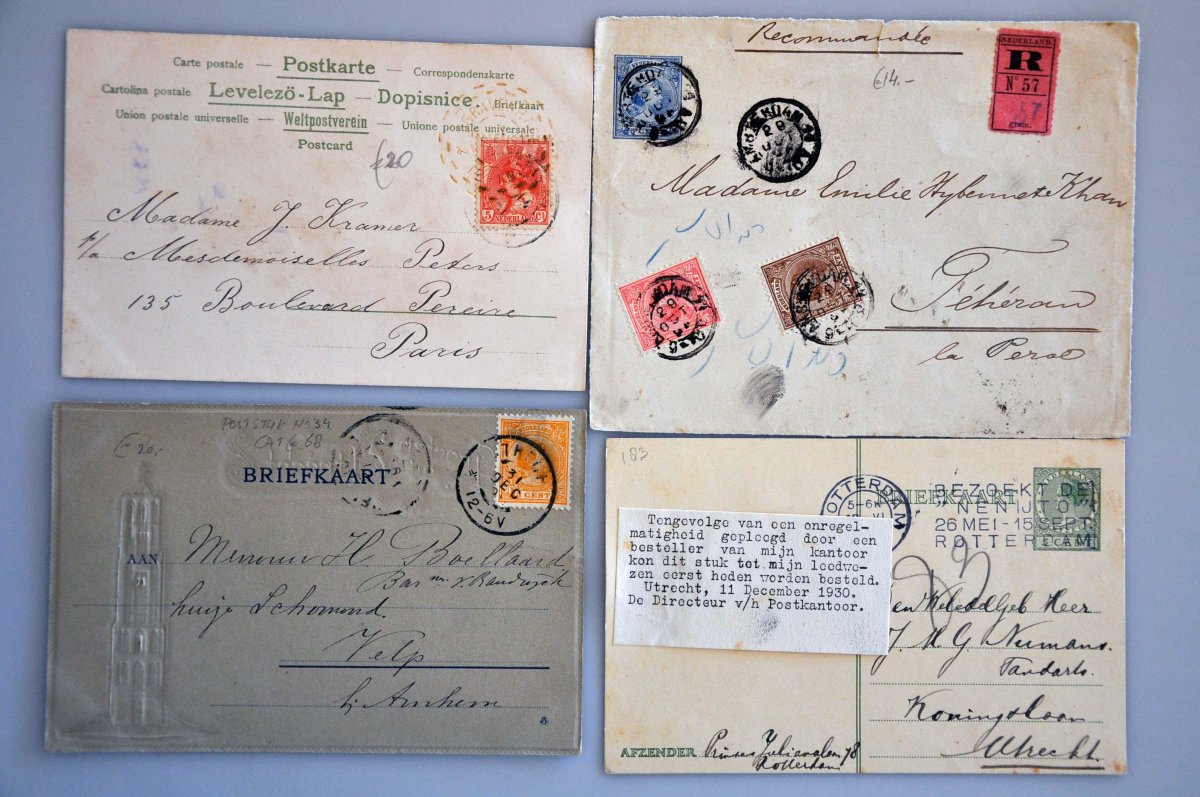 Carte postale — Postkarte — Correspondenzkarte
Cartolina postale — Levelező-Lap — Dopisnice. Briefkaart
Union postale universelle — Weltpostverein — Unione postale universale
Postcard
€20
5 NEDERLAND Ct
Madame J. Kramer
p/a Mesdemoiselles Peters
135 Boulevard Pereire
Paris
Recommandée
€14.-
NEDERLAND.
R
No 57
57
gram.
Madame Emilie Hybennete Khan
Téhéran
la Perse
POSTSTUK No 34.
CAT € 68
€ 20,-
BRIEFKAART
CENT
31
DEC
12-6V
AAN
Mevrouw H. Boellaard
huize Schomond
Velp
bij Arnhem
183
BRIEFKAART
ROTTERDAM
5-6N
BEZOEKT DE
"NENIJTO"
26 MEI-15 SEPT.
ROTTERDAM
5 CENT
Tengevolge van een onregel-
matigheid gepleegd door een
besteller van mijn kantoor
kon dit stuk tot mijn leedwe-
zen eerst heden worden besteld.
Utrecht, 11 December 1930.
De Directeur v/h Postkantoor.
Heer
J. M. G. Numans.
Tandarts.
Koningslaan
Utrecht.
AFZENDER Prinses Julianaln 78
Rotterdam